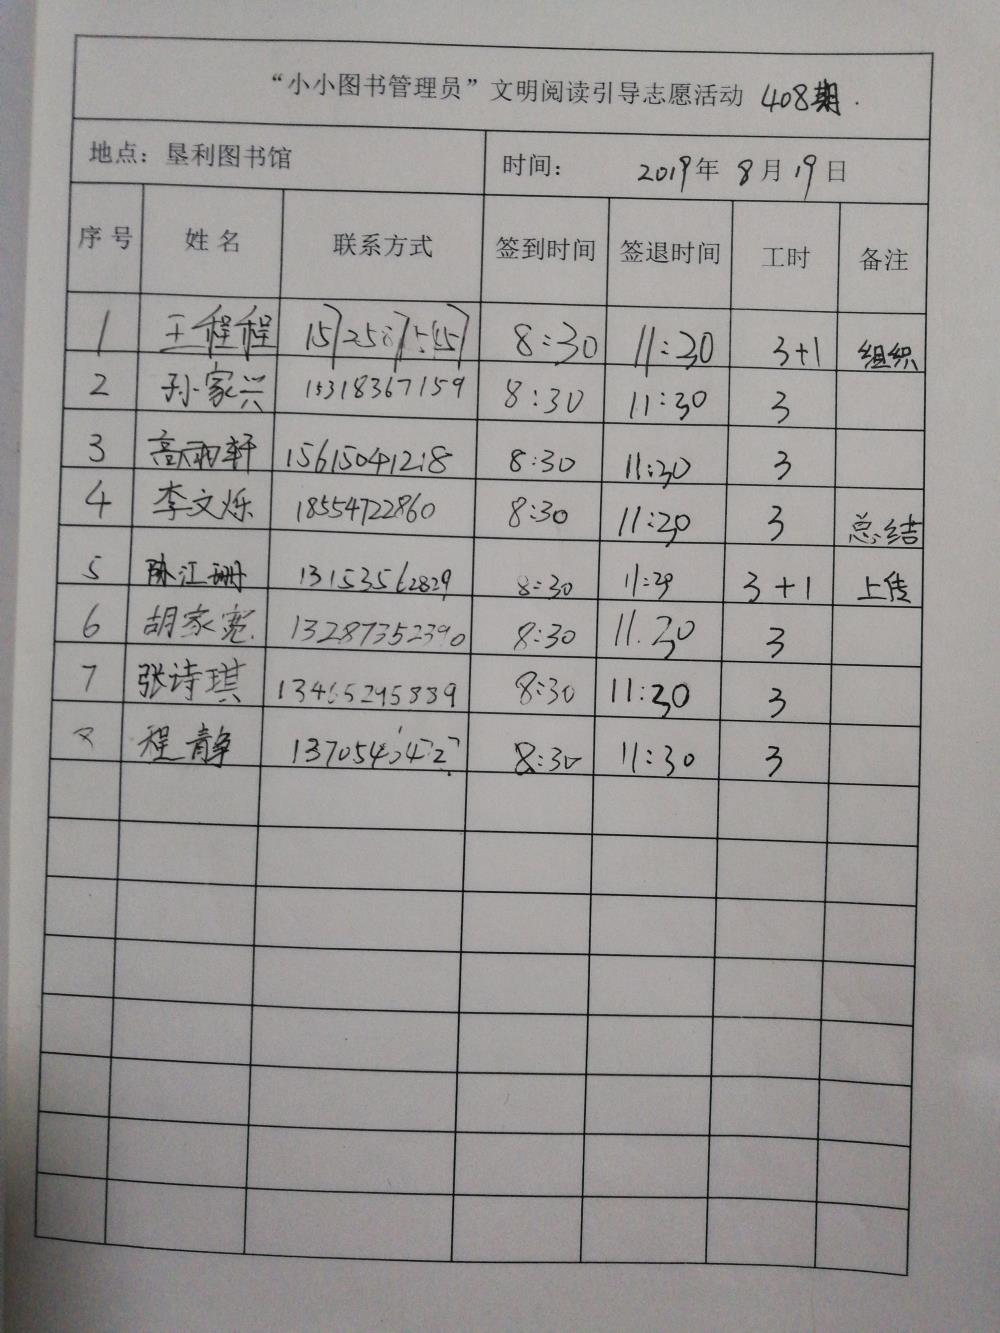 “小小图书管理员”文明阅读引导志愿活动 408期.
地点：垦利图书馆 时间： 2019年 8月19日
序号 姓名 联系方式 签到时间 签退时间 工时 备注
1 王程程 8:30 11:30 3+1 组织
2 孙家兴 15318367159 8:30 11:30 3
3 高雨轩 15615041218 8:30 11:30 3
4 李文烁 18554722860 8:30 11:30 3 总结
5 陈江珊 13153562829 8:30 3+1 上传
6 胡家宽 13287352390 8:30 11.30 3
7 张诗琪 13465295889 8:30 11:30 3
程静 8:30 11:30 3